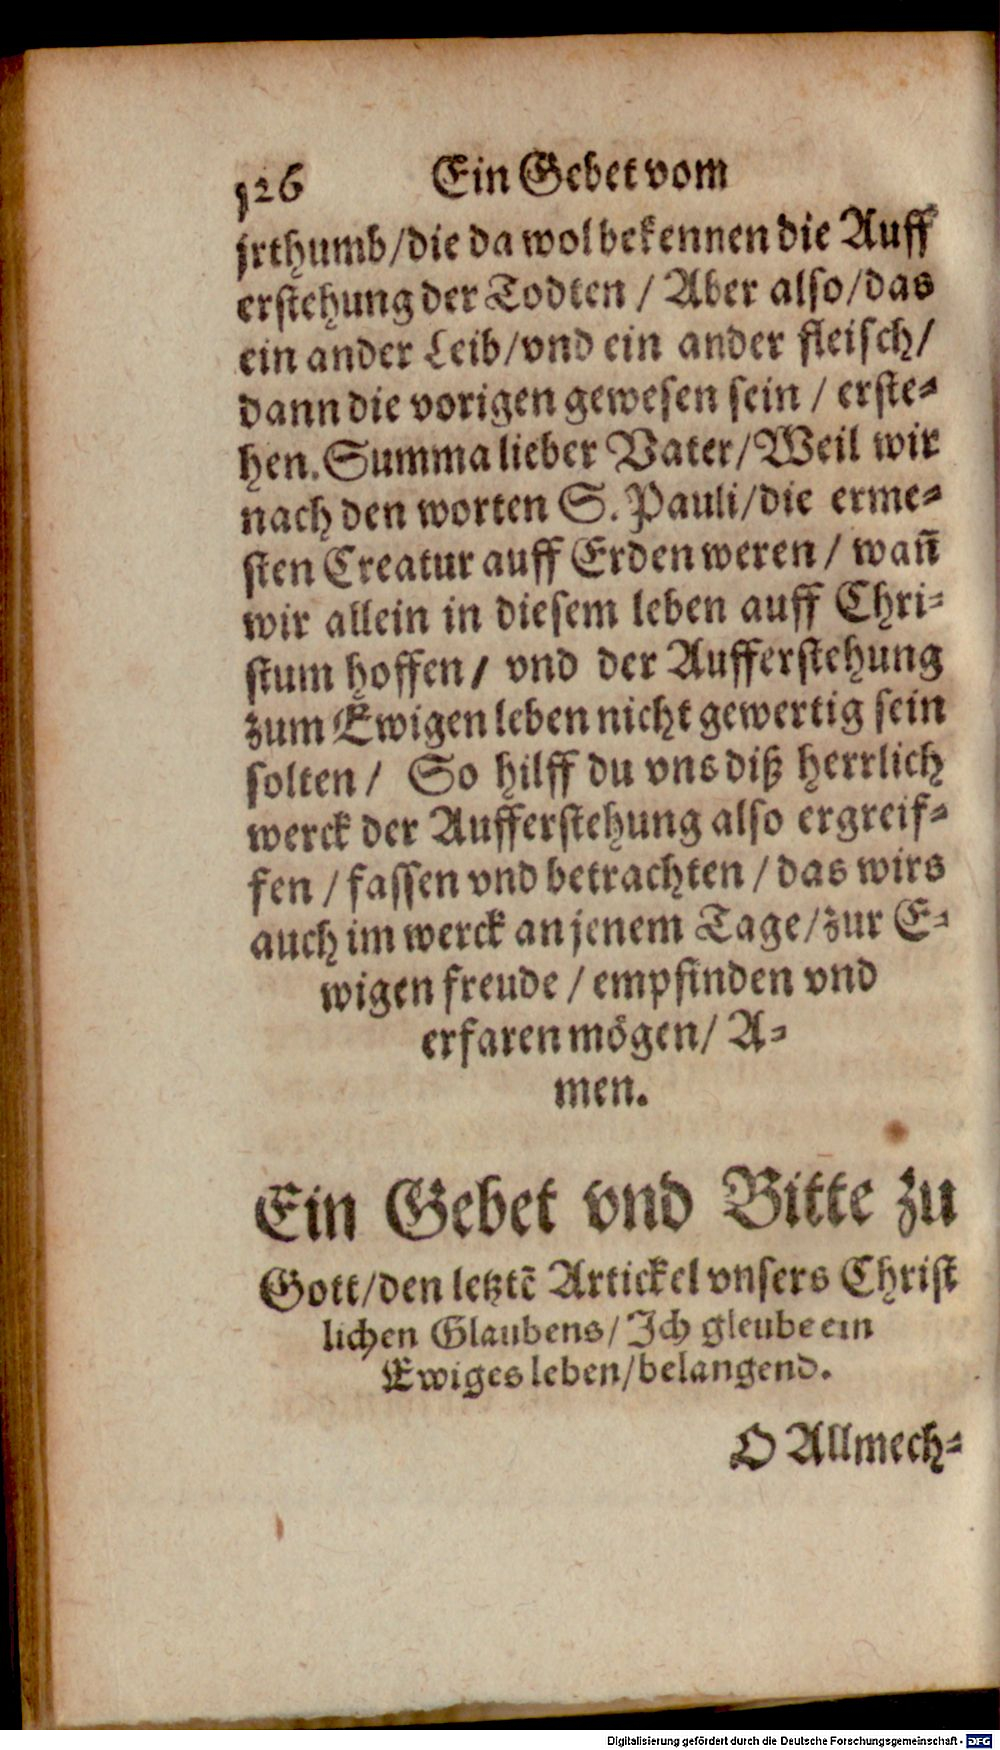 526 Ein Gebet vom
jrthumb/die da wol bekennen die Auff
erstehung der Todten / Aber also/das
ein ander Leib/vnd ein ander fleisch/
dann die vorigen gewesen sein / erste⸗
hen. Summa lieber Vater/Weil wir
nach den worten S. Pauli/die erme⸗
sten Creatur auff Erden weren / wañ
wir allein in diesem leben auff Chri⸗
stum hoffen/ vnd der Aufferstehung
zum Ewigen leben nicht gewertig sein
solten / So hilff du vns diß herrlich
werck der Aufferstehung also ergreif⸗
fen / fassen vnd betrachten / das wirs
auch im werck an jenem Tage/zur E⸗
wigen freude / empfinden vnd
erfaren mögen/ A⸗
men.
Ein Gebet vnd Bitte zu
Gott/den letztē Artickel vnsers Christ
lichen Glaubens/ Ich gleube ein
Ewiges leben/belangend.
O Allmech⸗
Digitalisierung gefördert durch die Deutsche Forschungsgemeinschaft - DFG